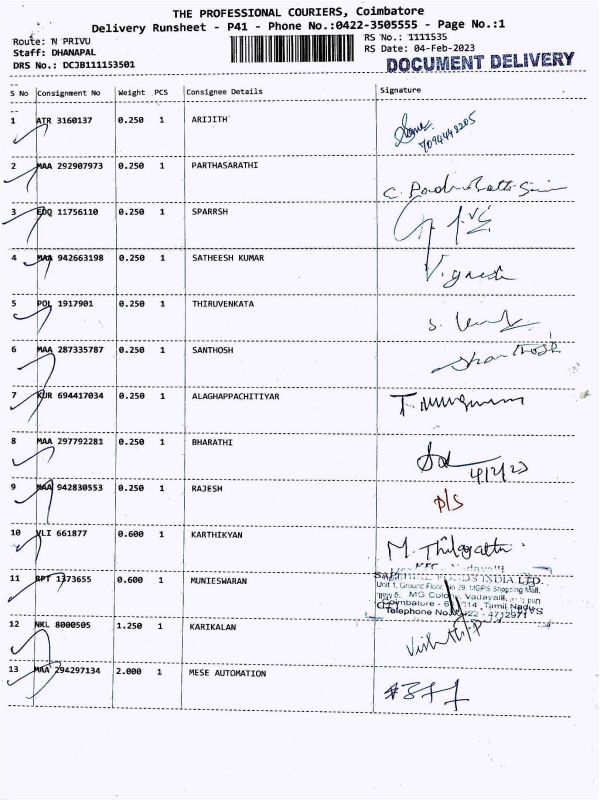 THE PROFESSIONAL COURIERS, Coimbatore
Delivery Runsheet - P41 - Phone No.:0422-3505555 - Page No.:1
Route: N PRIVU
RS No.: 1111535
Staff: DHANAPAL
RS Date: 04-Feb-2023
DRS No.: DCJB111153501
DOCUMENT DELIVERY
S No Consignment No Weight PCS Consignee Details Signature
1 ATR 3160137 0.250 1 ARIJITH
7094448205
2 MAA 292907973 0.250 1 PARTHASARATHI
3 EDQ 11756110 0.250 1 SPARRSH
4 MAA 942663198 0.250 1 SATHEESH KUMAR
5 POL 1917901 0.250 1 THIRUVENKATA
6 MAA 287335787 0.250 1 SANTHOSH
Shanthosh
7 KUR 694417034 0.250 1 ALAGHAPPACHITIYAR
T. Murugan
8 MAA 297792281 0.250 1 BHARATHI
4/2/23
9 MAA 942830553 0.250 1 RAJESH
D/S
10 VLI 661877 0.600 1 KARTHIKYAN
M. Thilagathi
11 RPT 1373655 0.600 1 MUNIESWARAN
FOODS INDIA LTD.
Unit 1, Ground Floor, No 29, MGPS Shopping Mall,
MG Colony, Vadavalli,
Coimbatore - 641014, Tamil Nadu
Telephone No. 0422 - 4712971
12 NKL 8000505 1.250 1 KARIKALAN
13 MAA 294297134 2.000 1 MESE AUTOMATION